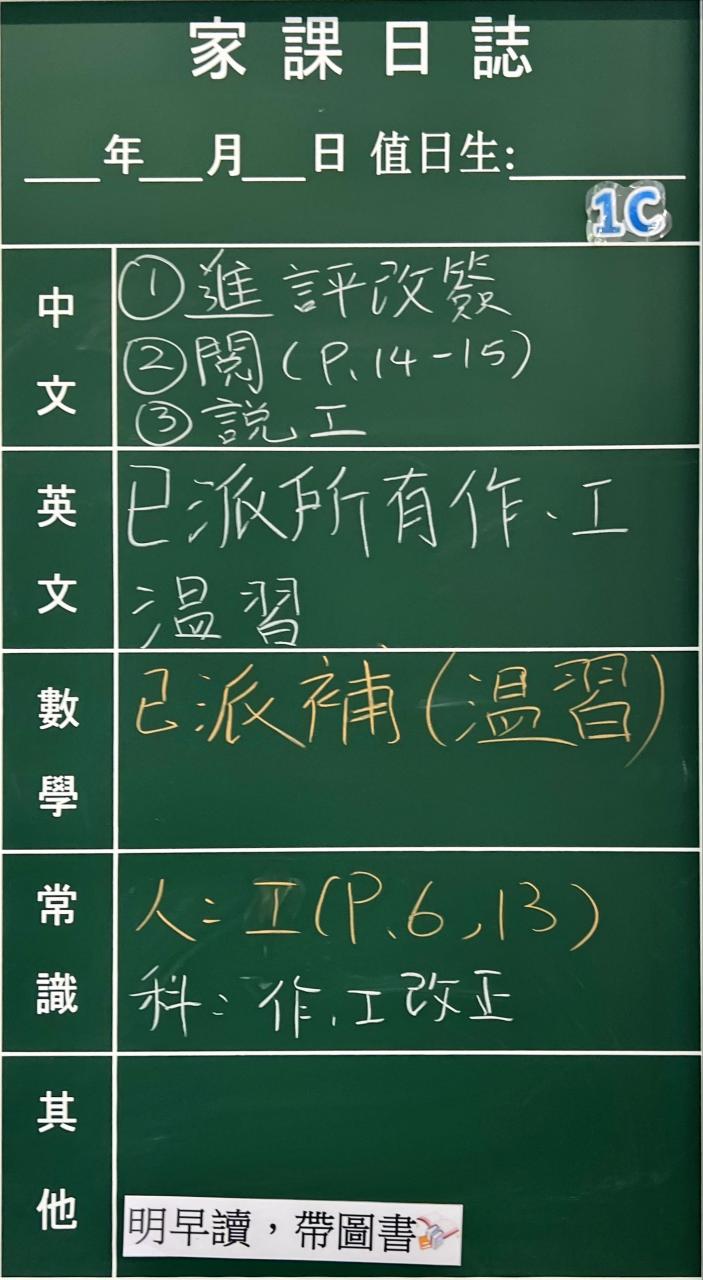 家課日誌
___年___月___日 值日生:__________
1C
中文
①進評改簽
②閱(P.14-15)
③說工
英文
已派所有作、工
溫習
數學
已派補(溫習)
常識
人:工(P.6,13)
科:作.工改正
其他
明早讀,帶圖書